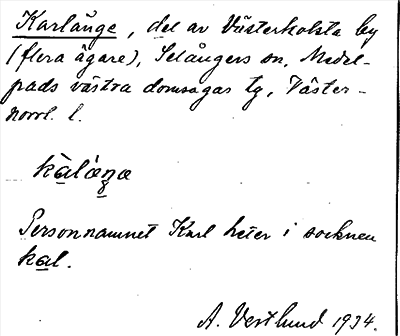 Karlänge, del av Västerkolsta by
(flera ägare), Selångers sn, Medel-
pads västra domsagas tg, Väster-
norrl. l.
Personnamnet Karl heter i socknen
kal.
A. Vestlund 1934.